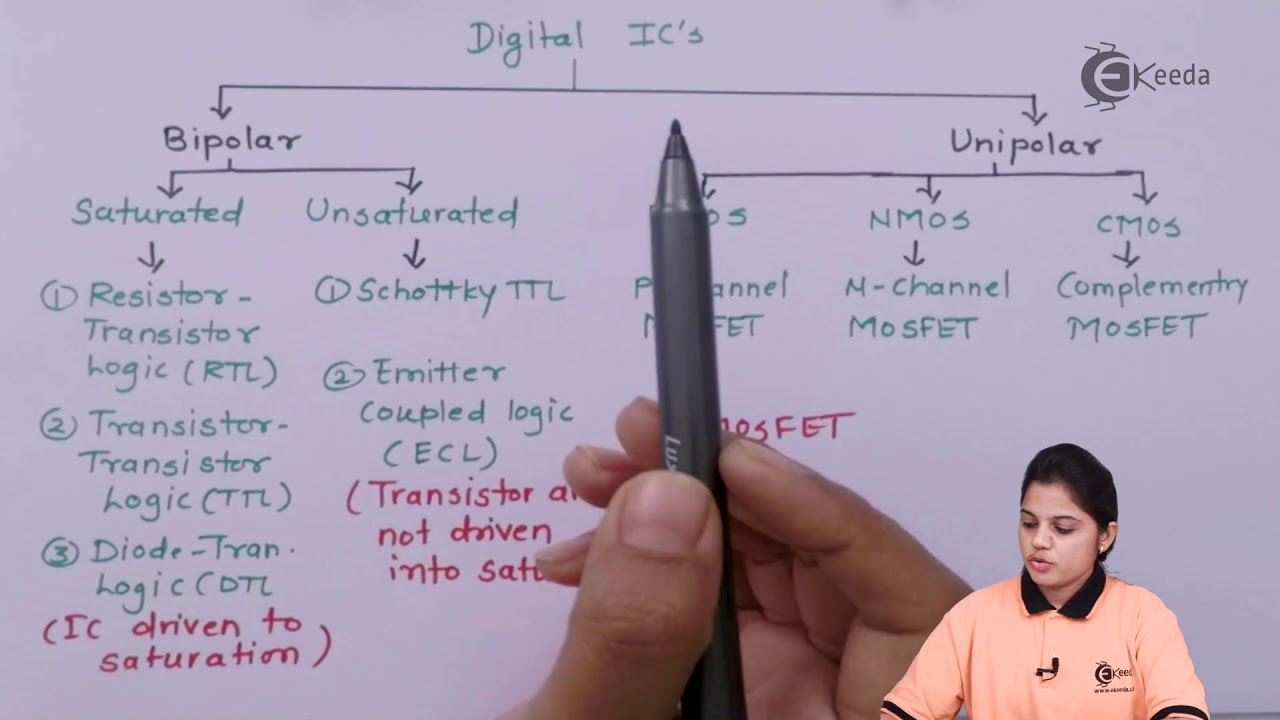 Digital IC's
Keeda
Bipolar
Unipolar
Saturated
Unsaturated
NMOS
CMOS
① Resistor-
Transistor
Logic (RTL)
② Transistor-
Transistor
Logic (TTL)
③ Diode-Tran.
Logic (DTL
(IC driven to
saturation)
① Schottky TTL
② Emitter
Coupled logic
(ECL)
(Transistor
not driven
into
N-Channel
MOSFET
Complementry
MOSFET
MOSFET
Keeda